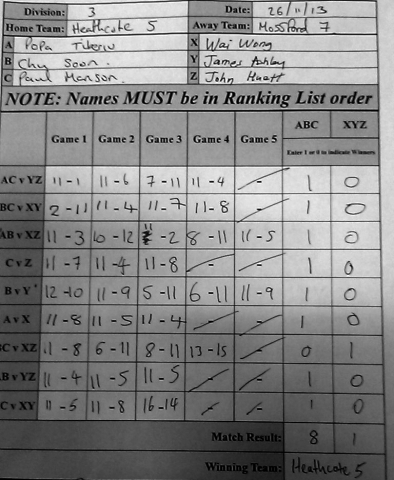 Division: 3 Date: 26/11/13
Home Team: Heathcote 5 Away Team: Mossford 7
A Popa Tiberiu X Wai Wong
B Chu Soon. Y James Ashley
C Paul Manson. Z John Huett
NOTE: Names MUST be in Ranking List order
Game 1 Game 2 Game 3 Game 4 Game 5 ABC XYZ
Enter 1 or 0 to indicate Winners
AC v YZ 11 - 1 11 - 6 7 - 11 11 - 4 - 1 0
BC v XY 2 - 11 11 - 4 11 - 7 11 - 8 - 1 0
AB v XZ 11 - 3 10 - 12 11 - 2 8 - 11 11 - 5 1 0
C v Z 11 - 7 11 - 4 11 - 8 - - 1 0
B v Y 12 - 10 11 - 9 5 - 11 6 - 11 11 - 9 1 0
A v X 11 - 8 11 - 5 11 - 4 - - 1 0
BC v XZ 11 - 8 6 - 11 8 - 11 13 - 15 - 0 1
AB v YZ 11 - 4 11 - 5 11 - 5 - - 1 0
C v XY 11 - 5 11 - 8 16 - 14 - - 1 0
Match Result: 8 1
Winning Team: Heathcote 5